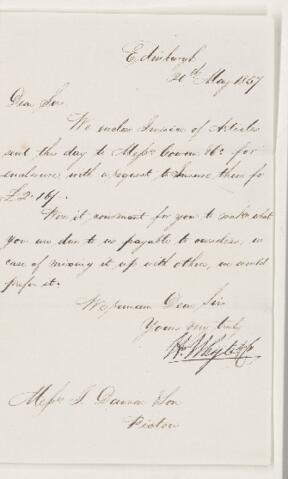 Edinburgh
20th May 1857
Dear Sir
We enclose Invoice of Articles
sent this day to Messrs Cowan &Co. for
enclosure, with a request to Insure them for
£2.16/-.
Were it convenient for you to make what
you are due to us payable to ourselves, in
case of mixing it up with others, we would
prefer it.
We remain Dear Sir
Yours very truly
Wm Whyte & Co
Messrs J Dawson & Son
Pictou